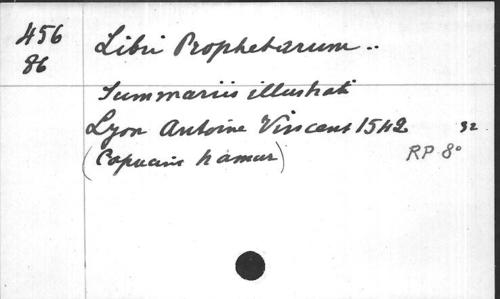 456
86
Libri Prophetarum ..
Summariis illustrati
Lyon Antoine Vincent 1542 32
(Capucins Namur) RP 8°